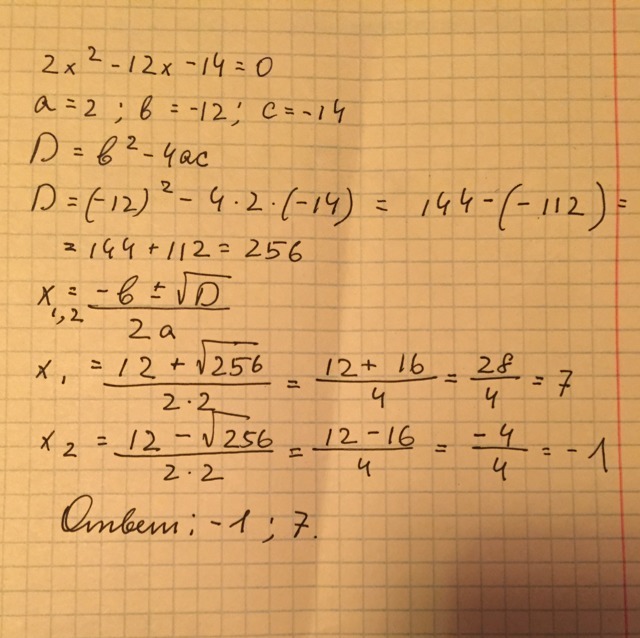 2x² - 12x - 14 = 0
a = 2 ; b = -12 ; c = -14
D = b² - 4ac
D = (-12)² - 4 · 2 · (-14) = 144 - (-112) =
= 144 + 112 = 256
x₁,₂ = (-b ± √D) / 2a
x₁ = (12 + √256) / (2 · 2) = (12 + 16) / 4 = 28 / 4 = 7
x₂ = (12 - √256) / (2 · 2) = (12 - 16) / 4 = -4 / 4 = -1
Ответ: -1 ; 7.